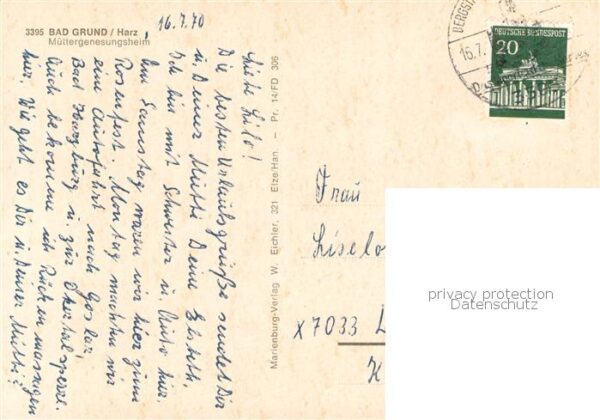 3395 BAD GRUND / Harz
Müttergenesungsheim
16.7.70
Liebe Lilo!
Die besten Urlaubsgrüße sendet Dir
u. Deiner Mutti Deine Elsbeth.
Ich bin mit Schwester u. Auto hier.
Am Samstag waren wir hier zum
Rosenfest. Montag machten wir
eine Autofahrt nach Goslar
Bad Harzburg u. zur Okertalsperre.
Auch bekomme ich Rückenmassagen
hier. Wie geht es Dir u. Deiner Mutti?
Marienburg-Verlag W. Eichler, 321 Elze/Han. – Pr. 14/FD 306
BERGSTA
16.7.
DEUTSCHE BUNDESPOST
20
Frau
Liselo
x 7033 L
privacy protection
Datenschutz